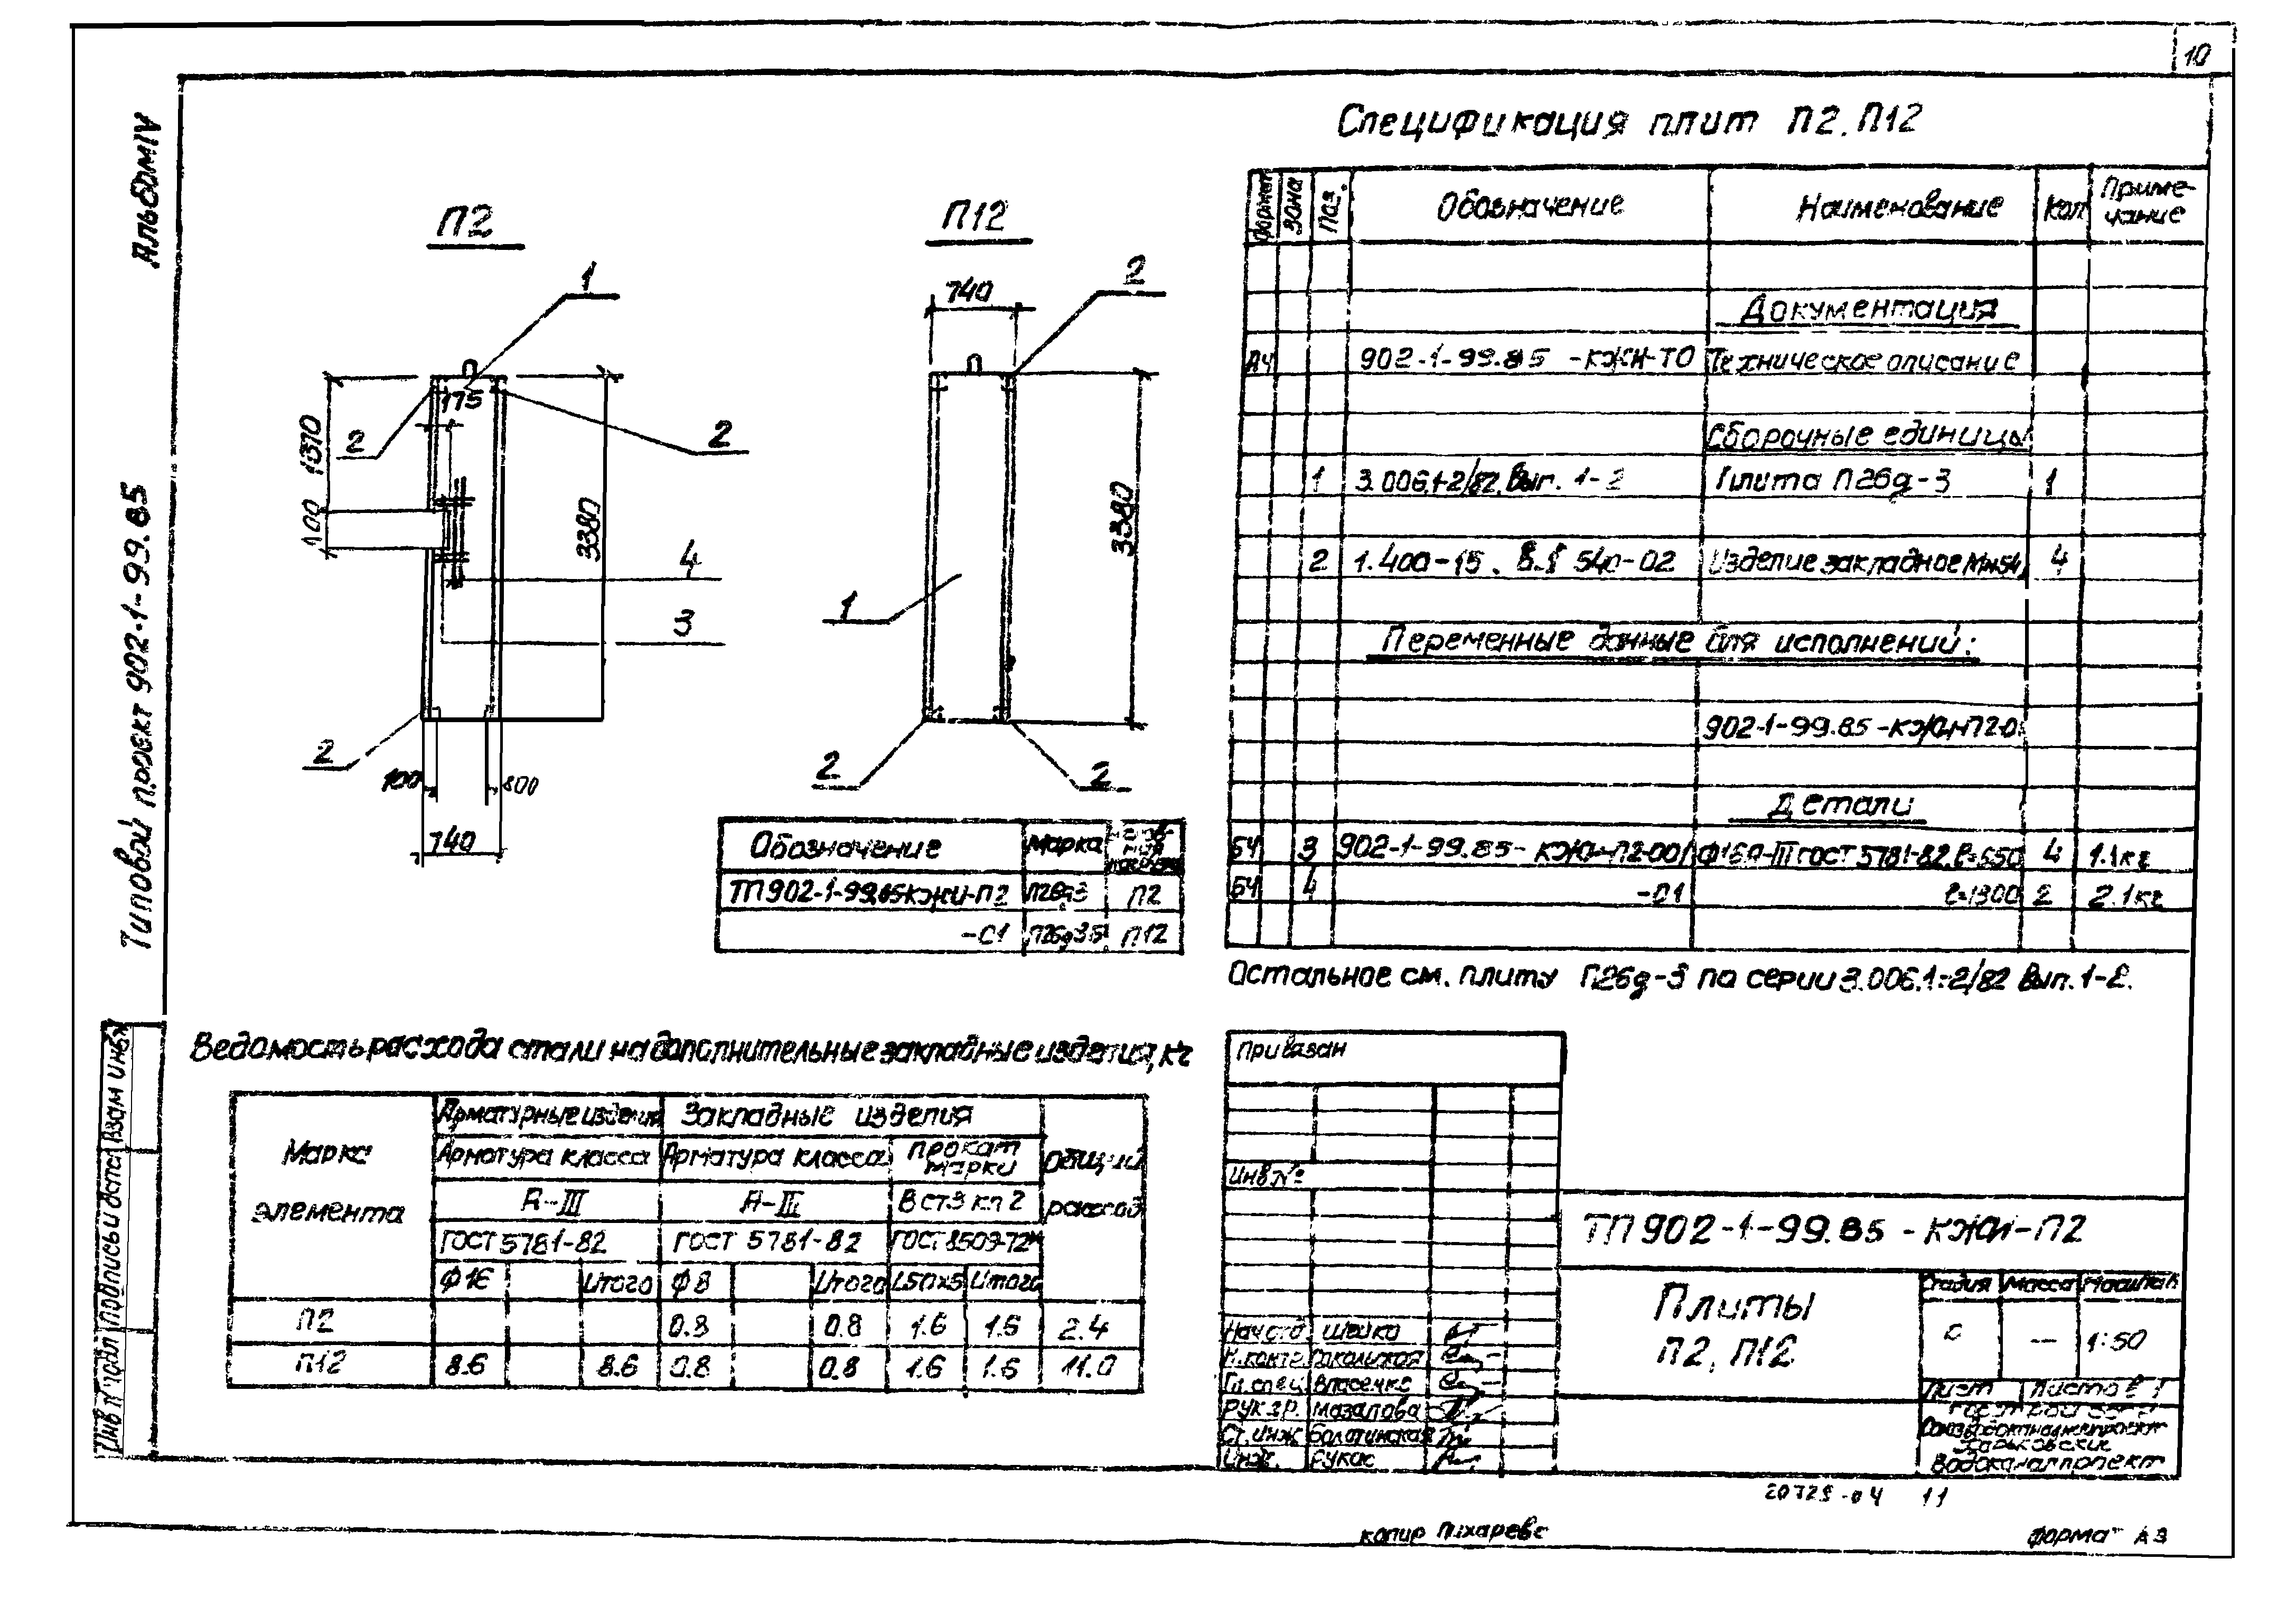 10
Альбом IV
Типовой проект 902-1-99.85
Взам инв
Подпись и дата
Инв № подл
П2
1
2
2
175
1370
400
3380
4
3
2
100
800
740
П12
740
2
1
3380
2
2
Обозначение Марка
ТП 902-1-99.85 КЖИ-П2 П26д3 П2
-01 П26д3б П12
Спецификация плит П2, П12
Формат Зона Поз. Обозначение Наименование Кол Приме-
чание
Документация
А4 902-1-99.85 -КЖИ-ТО Техническое описание
Сборочные единицы
1 3.006.1-2/82. Вып. 1-2 Плита П26д-3 1
2 1.400-15. 540-02 Изделие закладное МН54 4
Переменные данные для исполнений:
902-1-99.85 -КЖИ-П2-0
Детали
БЧ 3 902-1-99.85- КЖИ-П2-001 Ф16А-III ГОСТ 5781-82 ℓ=650 4 1.1кг
БЧ 4 -01 ℓ=1300 2 2.1кг
Остальное см. плиту П26д-3 по серии 3.006.1-2/82 Вып. 1-2.
Ведомость расхода стали на дополнительные закладные изделия, кг
Марка
элемента
Арматурные изделия Закладные изделия
Общий
расход
Арматура класса Арматура класса Прокат
марки
А-III А-III В ст3 кп 2
ГОСТ 5781-82 ГОСТ 5781-82 ГОСТ 8509-72*
Ф16 Итого Ф8 Итого L50х5 Итого
П2 0.8 0.8 1.6 1.6 2.4
П12 8.6 8.6 0.8 0.8 1.6 1.6 11.0
Привязан
Инв №
Нач отд. Шейко
Н. контр.
Гл. спец Власенко
Рук. гр. Мазалова
Ст. инж Болотинская
Инж. Рукас
ТП 902-1-99.85 - КЖИ-П2
Плиты
П2, П12
Стадия Масса Масштаб
— 1:50
Лист Листов 1
Госстрой СССР
Союзводоканалниипроект
Харьковский
Водоканалпроект
20725-04 11
копир
формат А3